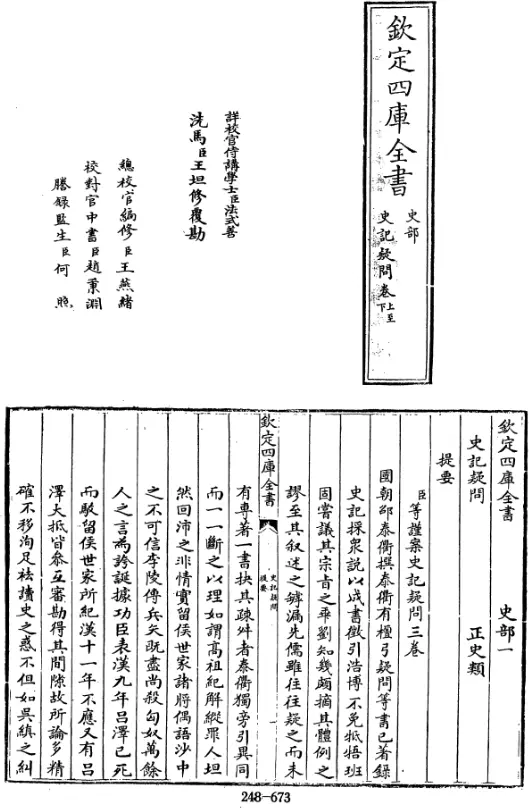 欽定四庫全書
史部
史記疑問卷上至下
詳校官侍講學士臣法式善
洗馬臣王坦修覆勘
總校官編修臣王燕緒
校對官中書臣趙秉淵
謄錄監生臣何照
欽定四庫全書 史部一
史記疑問 正史類
提要
臣等謹案史記疑問三卷
國朝邵泰衢撰泰衢有檀弓疑問等書已著錄
史記採衆説以成書徵引浩博不免抵牾班
固嘗議其宗旨之乖劉知幾頗摘其體例之
謬至其叙述之罅漏先儒雖往往疑之而未
欽定四庫全書
史記疑問
提要
一
有專著一書抉其疎舛者泰衢獨旁引異同
而一一斷之以理如謂高祖紀解縱罪人坦
然回沛之非情實留侯世家諸將偶語沙中
之不可信李陵傳兵矢既盡尚殺匈奴萬餘
人之言為誇誕據功臣表漢九年吕澤已死
而駁留侯世家所紀漢十一年不應又有吕
澤大抵皆叅互審勘得其間隙故所論多精
確不移洵足袪讀史之惑不但如吳縝之糾
248-673